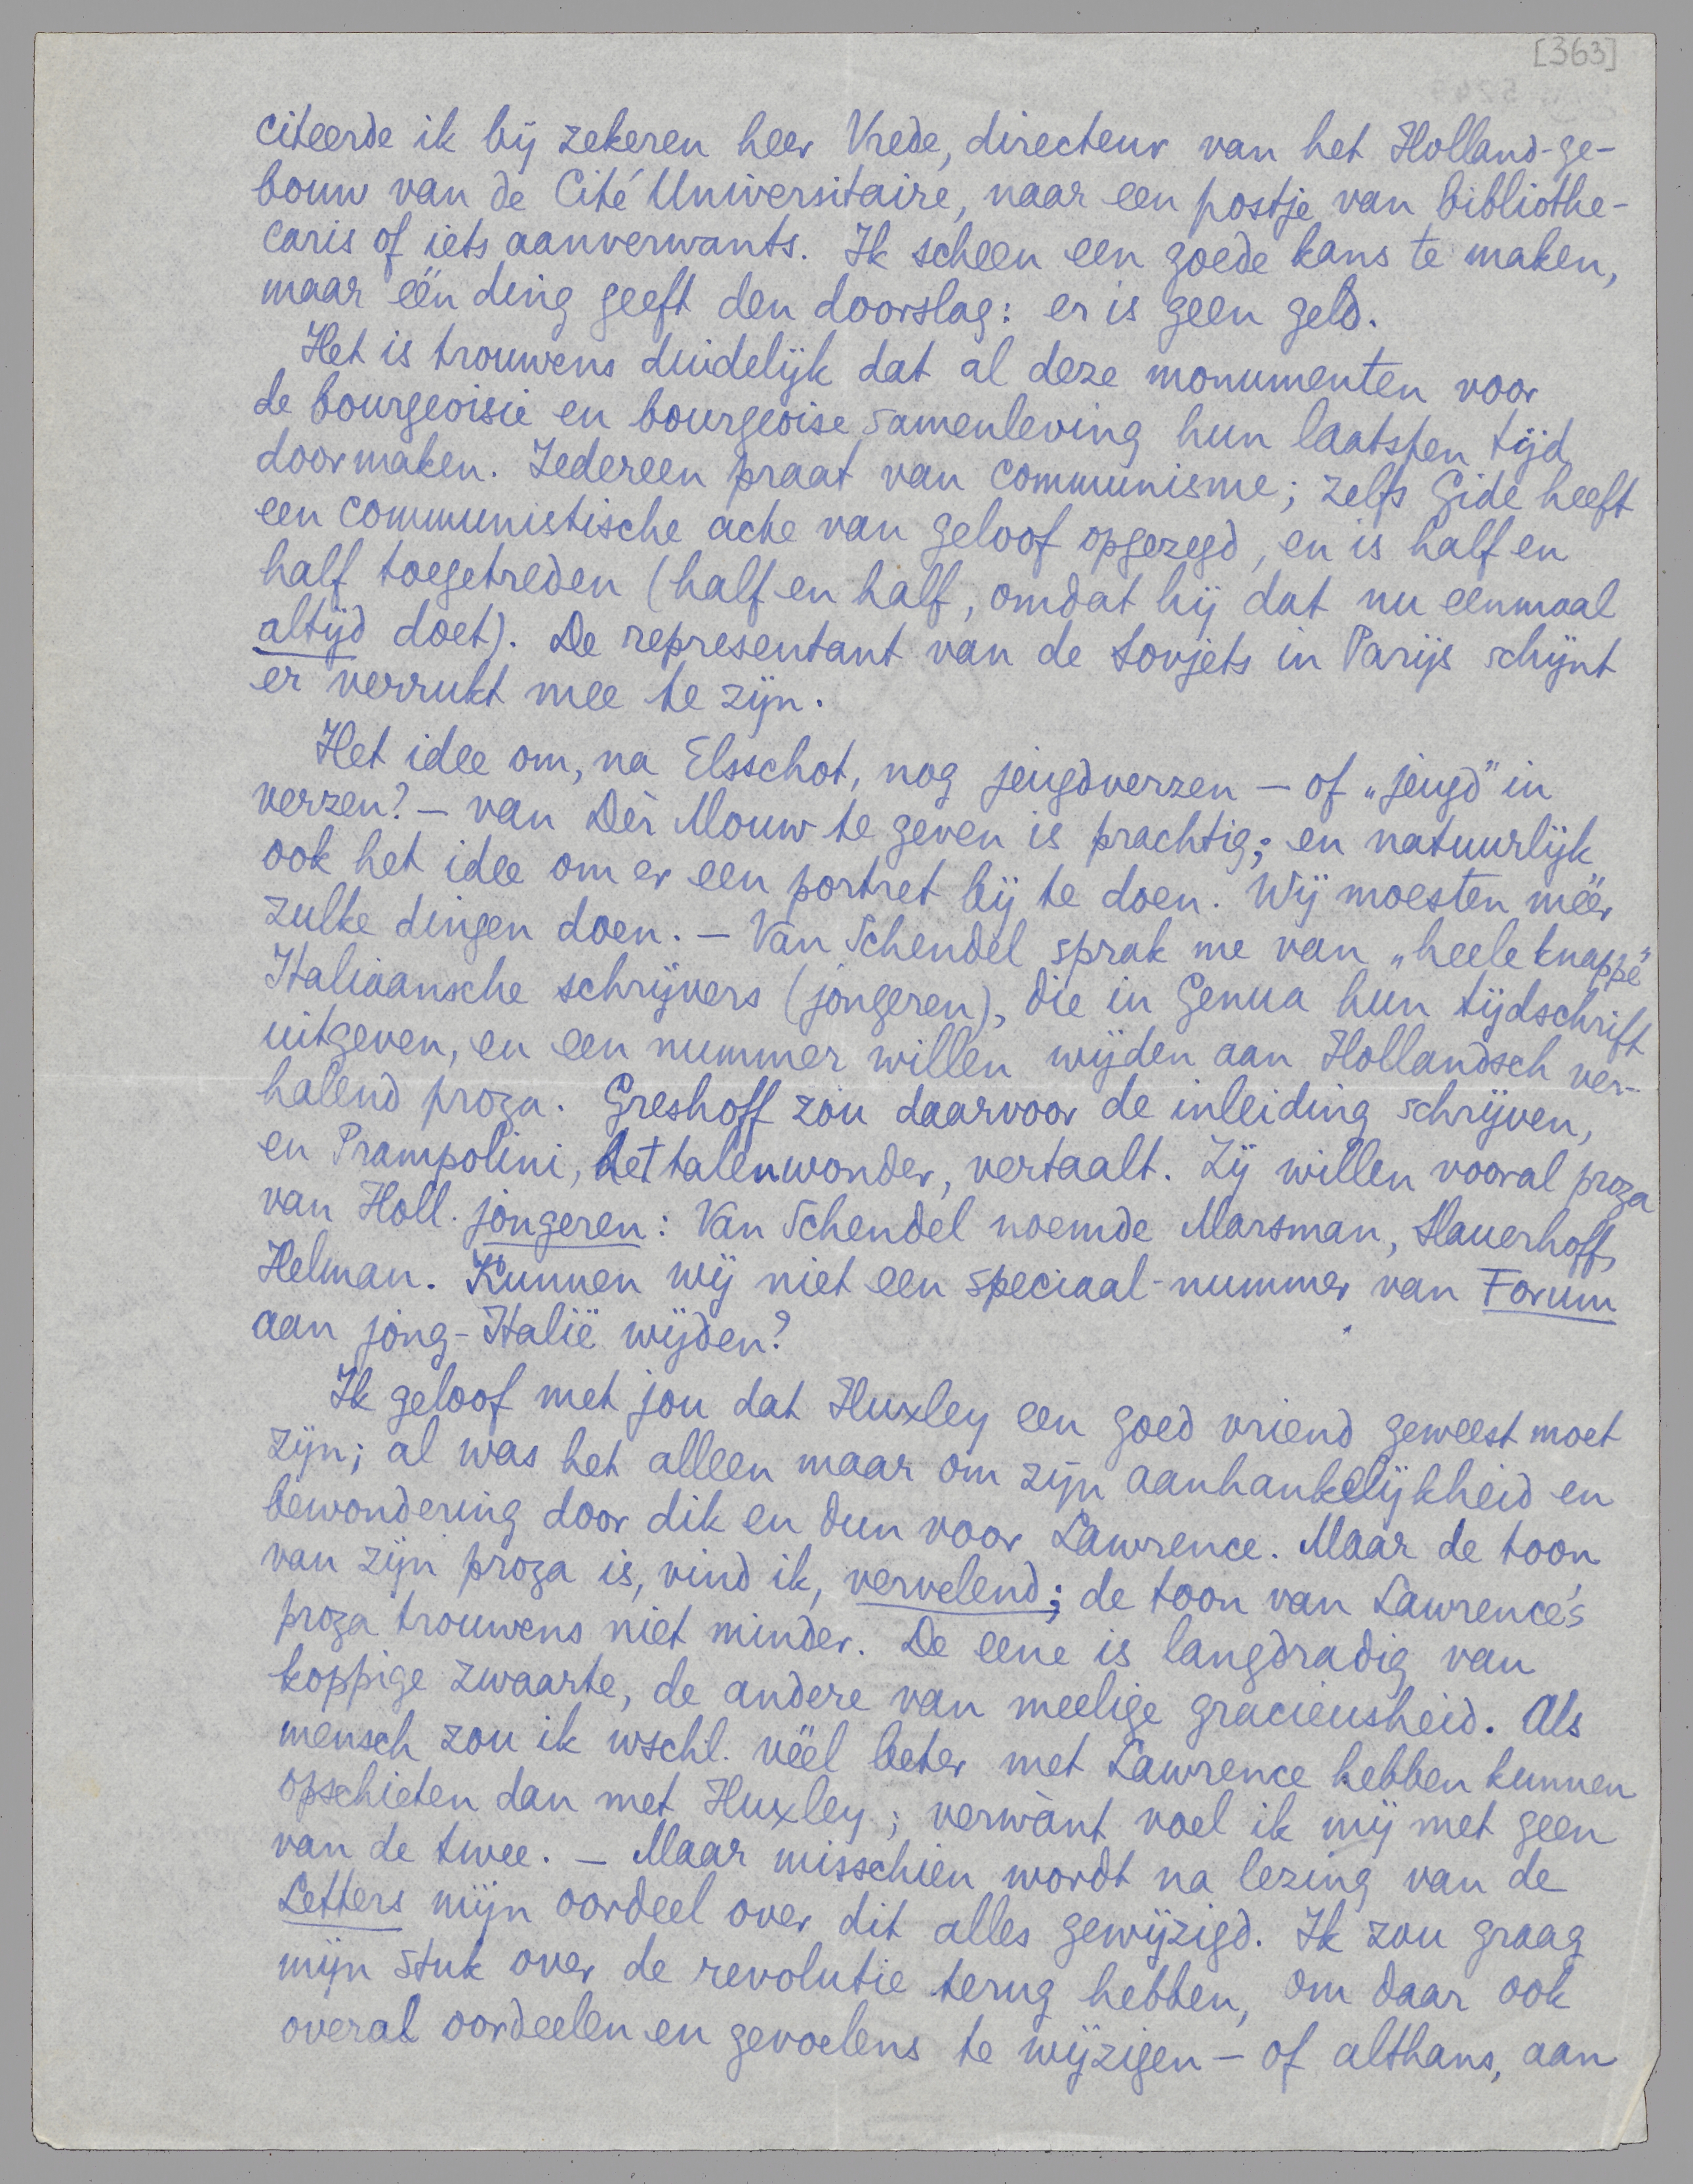 [363]
citeerde ik bij zekeren heer Vrede, directeur van het Holland-ge-
bouw van de Cité Universitaire, naar een postje van bibliothe-
caris of iets aanverwants. Ik scheen een goede kans te maken,
maar één ding geeft den doorslag: er is geen geld.
Het is trouwens duidelijk dat al deze monumenten voor
de bourgeoisie en bourgeoise samenleving hun laatsten tijd
doormaken. Iedereen praat van communisme; zelfs Gide heeft
een communistische acte van geloof opgezegd, en is half en
half toegetreden (half en half, omdat hij dat nu eenmaal
altijd doet). De representant van de Sovjets in Parijs schijnt
er verrukt mee te zijn.
Het idee om, na Elsschot, nog jeugdverzen — of „jeugd” in
verzen? — van Dèr Mouw te geven is prachtig; en natuurlijk
ook het idee om er een portret bij te doen. Wij moesten méér
zulke dingen doen. — Van Schendel sprak me van „heele knappe”
Italiaansche schrijvers (jongeren), die in Genua hun tijdschrift
uitgeven, en een nummer willen wijden aan Hollandsch ver-
halend proza. Greshoff zou daarvoor de inleiding schrijven,
en Prampolini, het talenwonder, vertaalt. Zij willen vooral proza
van Holl. jongeren: Van Schendel noemde Marsman, Slauerhoff,
Helman. Kunnen wij niet een speciaal-nummer van Forum
aan jong-Italië wijden?
Ik geloof met jou dat Huxley een goed vriend geweest moet
zijn; al was het alleen maar om zijn aanhankelijkheid en
bewondering door dik en dun voor Lawrence. Maar de toon
van zijn proza is, vind ik, vervelend; de toon van Lawrence's
proza trouwens niet minder. De eene is langdradig van
koppige zwaarte, de andere van meelige gracieusheid. Als
mensch zou ik wschl. véél beter met Lawrence hebben kunnen
opschieten dan met Huxley; verwànt voel ik mij met geen
van de twee. — Maar misschien wordt na lezing van de
Letters mijn oordeel over dit alles gewijzigd. Ik zou graag
mijn stuk over de revolutie terug hebben, om daar ook
overal oordeelen en gevoelens te wijzigen — of althans, aan